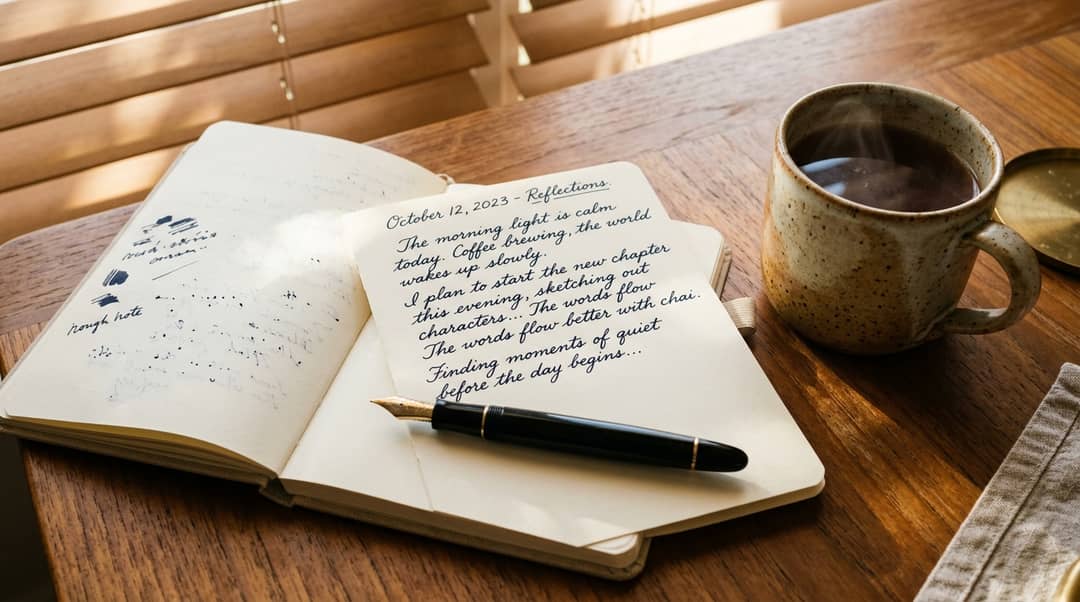 rough note
October 12, 2023 - Reflections.
The morning light is calm
today. Coffee brewing, the world
wakes up slowly.
I plan to start the new chapter
this evening, sketching out
characters... The words flow
The words flow better with chai.
Finding moments of quiet
before the day begins...